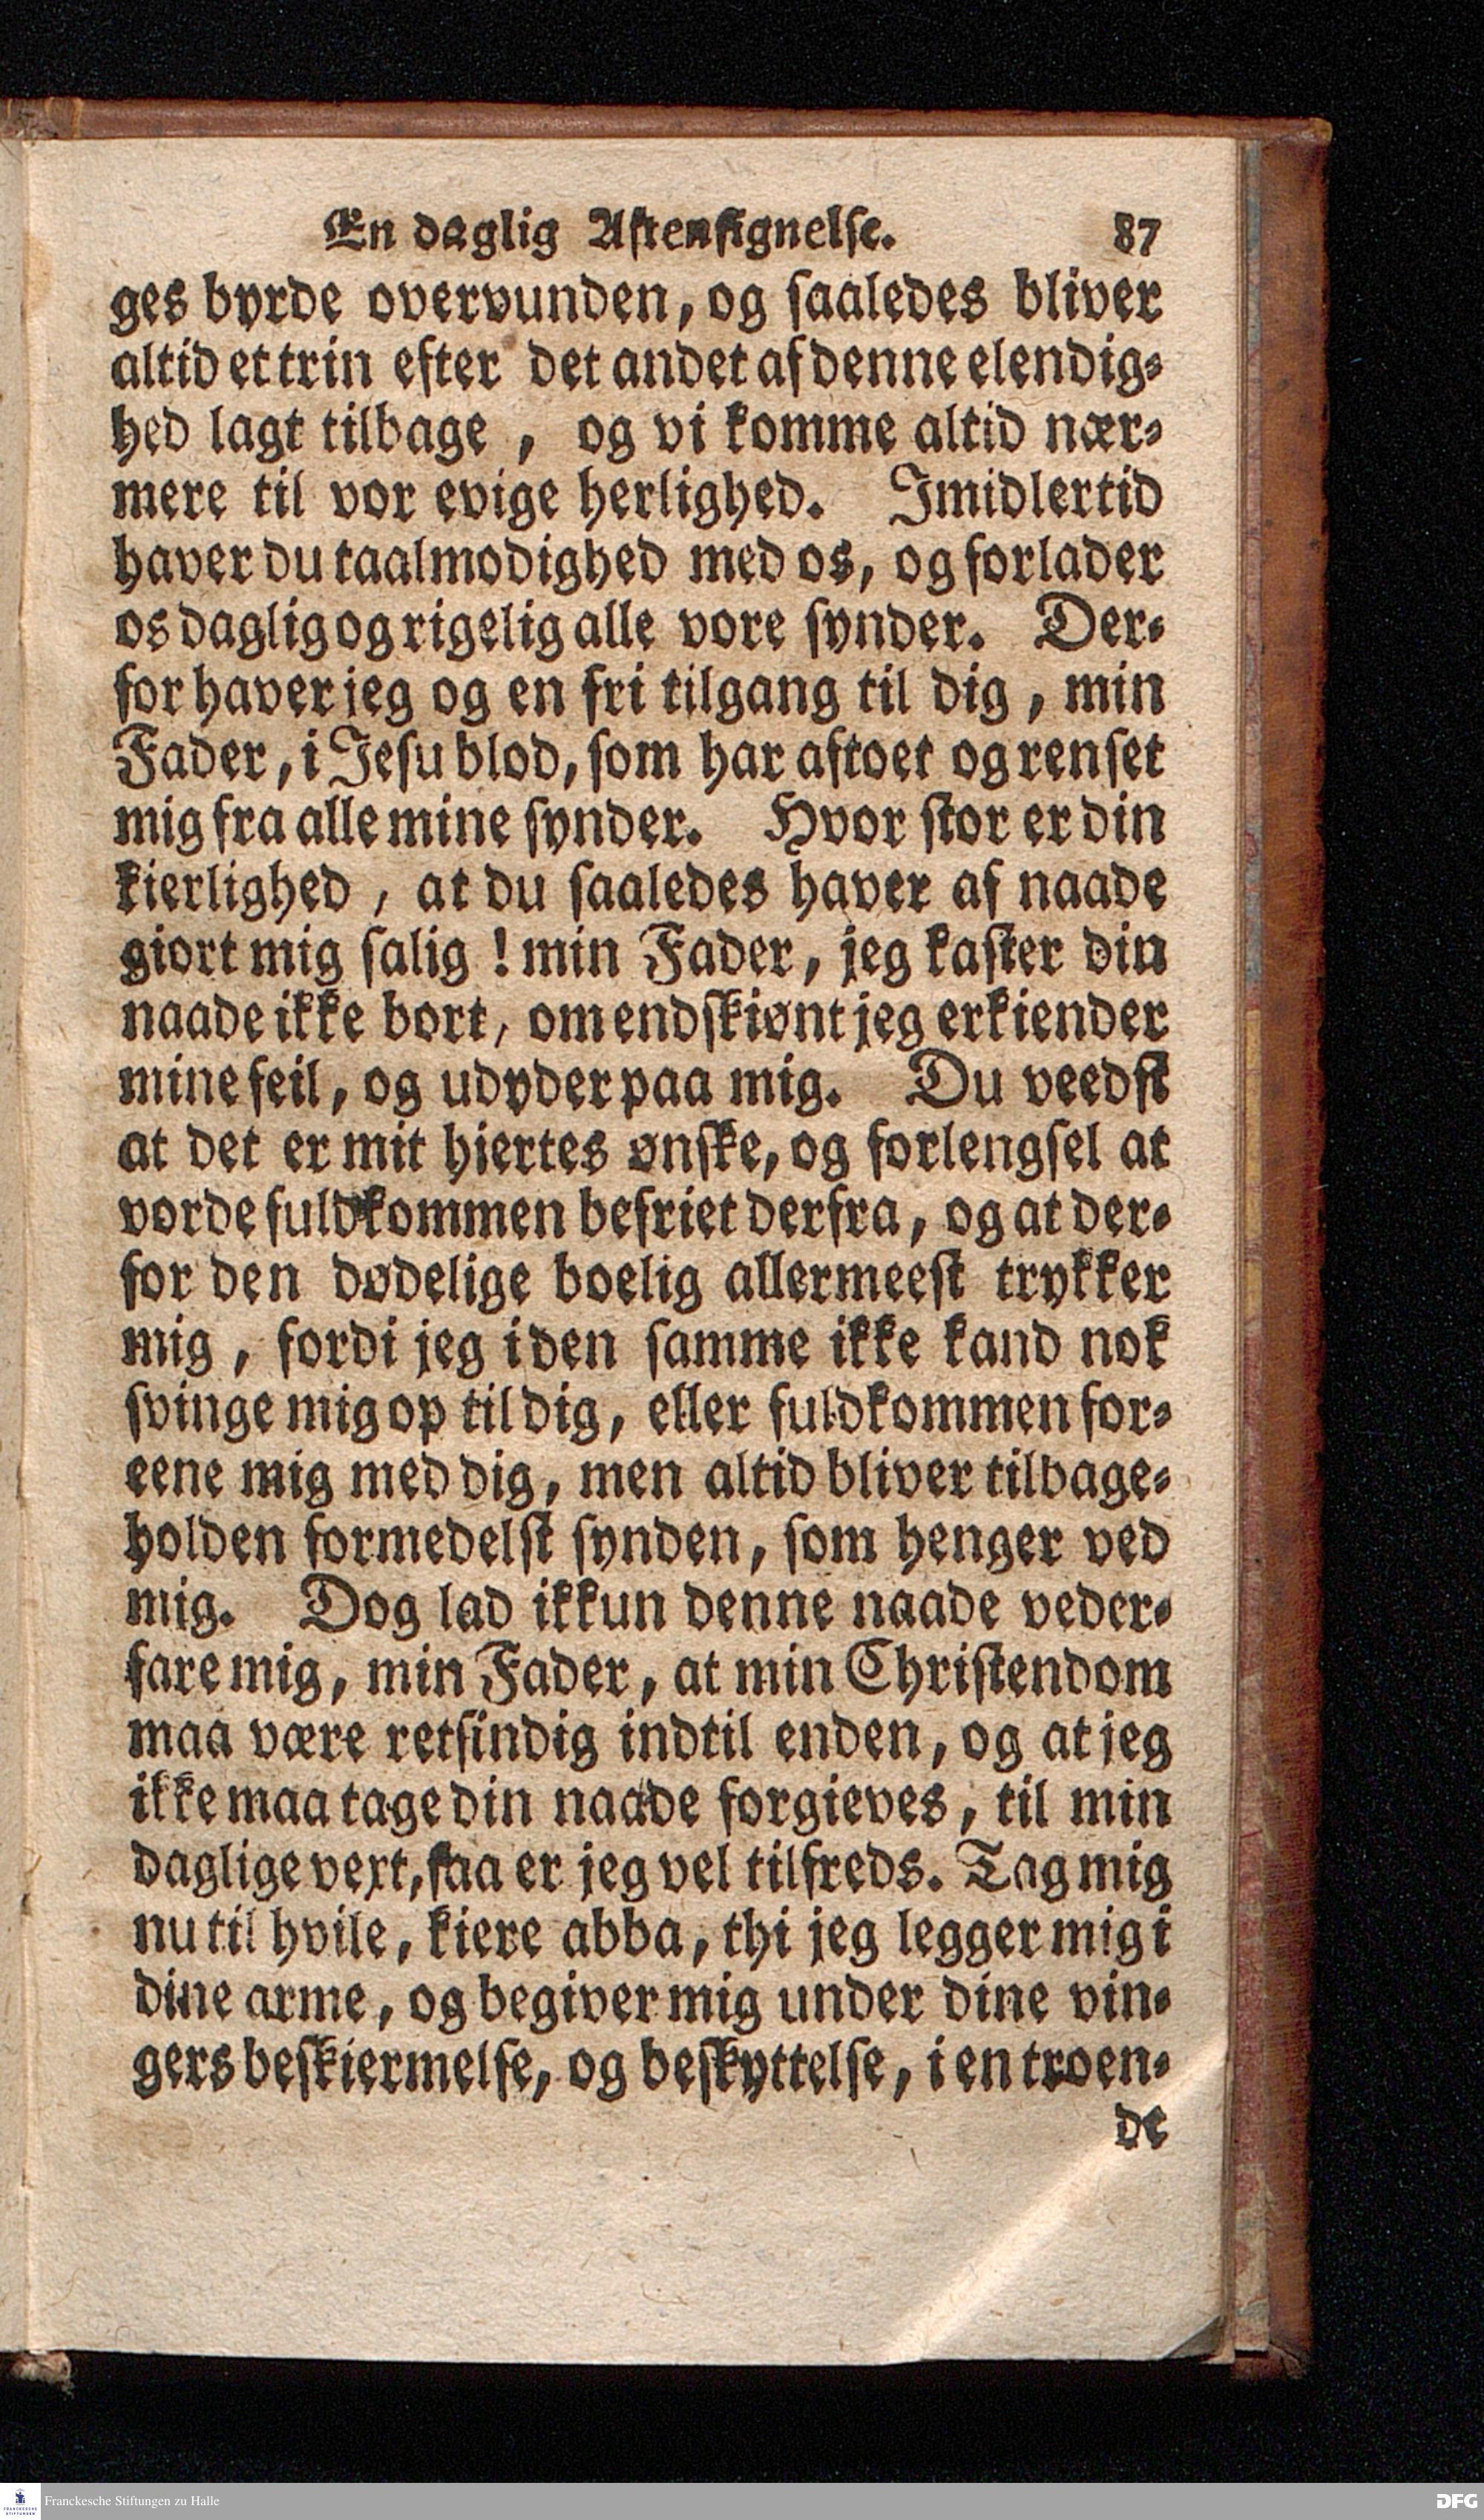 En daglig Aftensignelse. 87
ges byrde overvunden, og saaledes bliver
altid et trin efter det andet af denne elendig-
hed lagt tilbage, og vi komme altid nær-
mere til vor evige herlighed. Imidlertid
haver du taalmodighed med os, og forlader
os daglig og rigelig alle vore synder. Der-
for haver jeg og en fri tilgang til dig, min
Fader, i Jesu blod, som har aftoet og renset
mig fra alle mine synder. Hvor stor er din
kierlighed, at du saaledes haver af naade
giort mig salig! min Fader, jeg kaster din
naade ikke bort, omendskiønt jeg erkiender
mine feil, og udyder paa mig. Du veedst
at det er mit hiertes ønske, og forlengsel at
vorde fuldkommen befriet derfra, og at der-
for den dødelige boelig allermeest trykker
mig, fordi jeg i den samme ikke kand nok
svinge mig op til dig, eller fuldkommen for-
eene mig med dig, men altid bliver tilbage-
holden formedelst synden, som henger ved
mig. Dog lad ikkun denne naade veder-
fare mig, min Fader, at min Christendom
maa være retsindig indtil enden, og at jeg
ikke maa tage din naade forgieves, til min
daglige vext, saa er jeg vel tilfreds. Tag mig
nu til hvile, kiere abba, thi jeg legger mig i
dine arme, og begiver mig under dine vin-
gers beskiermelse, og beskyttelse, i en troen-
de
Franckesche Stiftungen zu Halle
DFG